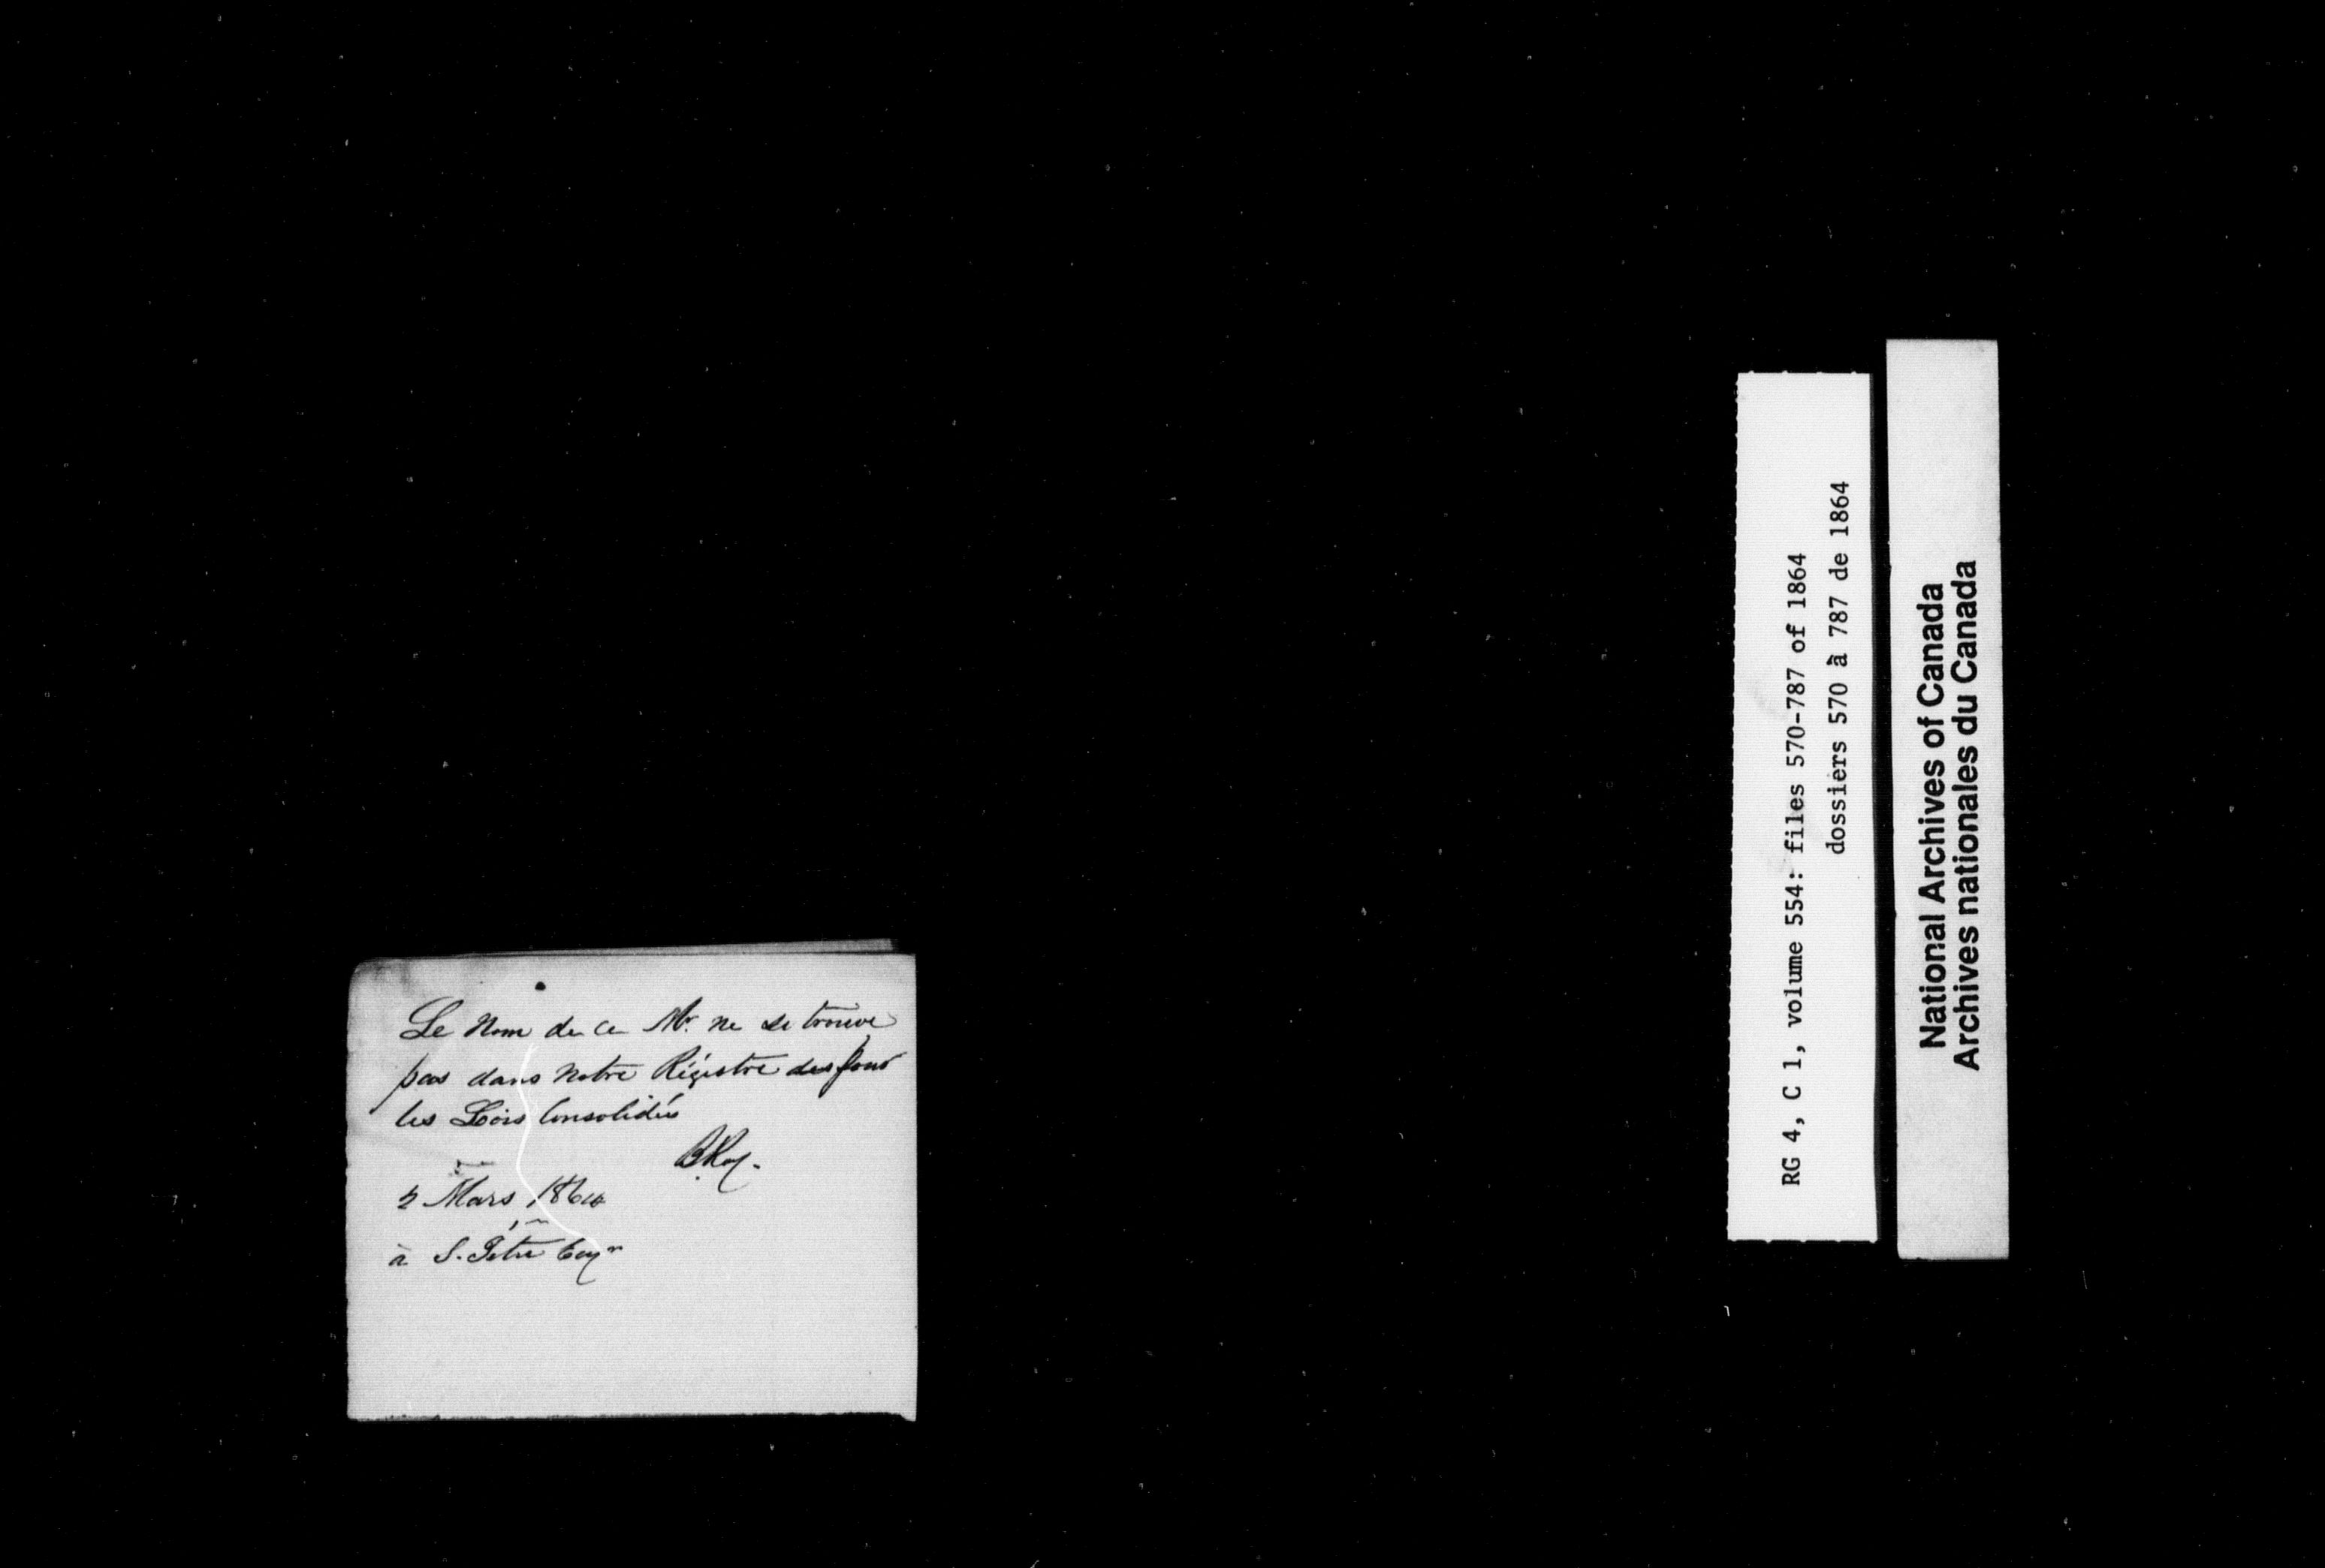 Le Nom de ce Mr. ne se trouve
pas dans Notre Régistre des pour
les Lois Consolidés
BRoy.
2 Mars 1864
à S. Pêtre
RG 4, C 1, volume 554: files 570-787 of 1864
dossiers 570 à 787 de 1864
National Archives of Canada
Archives nationales du Canada